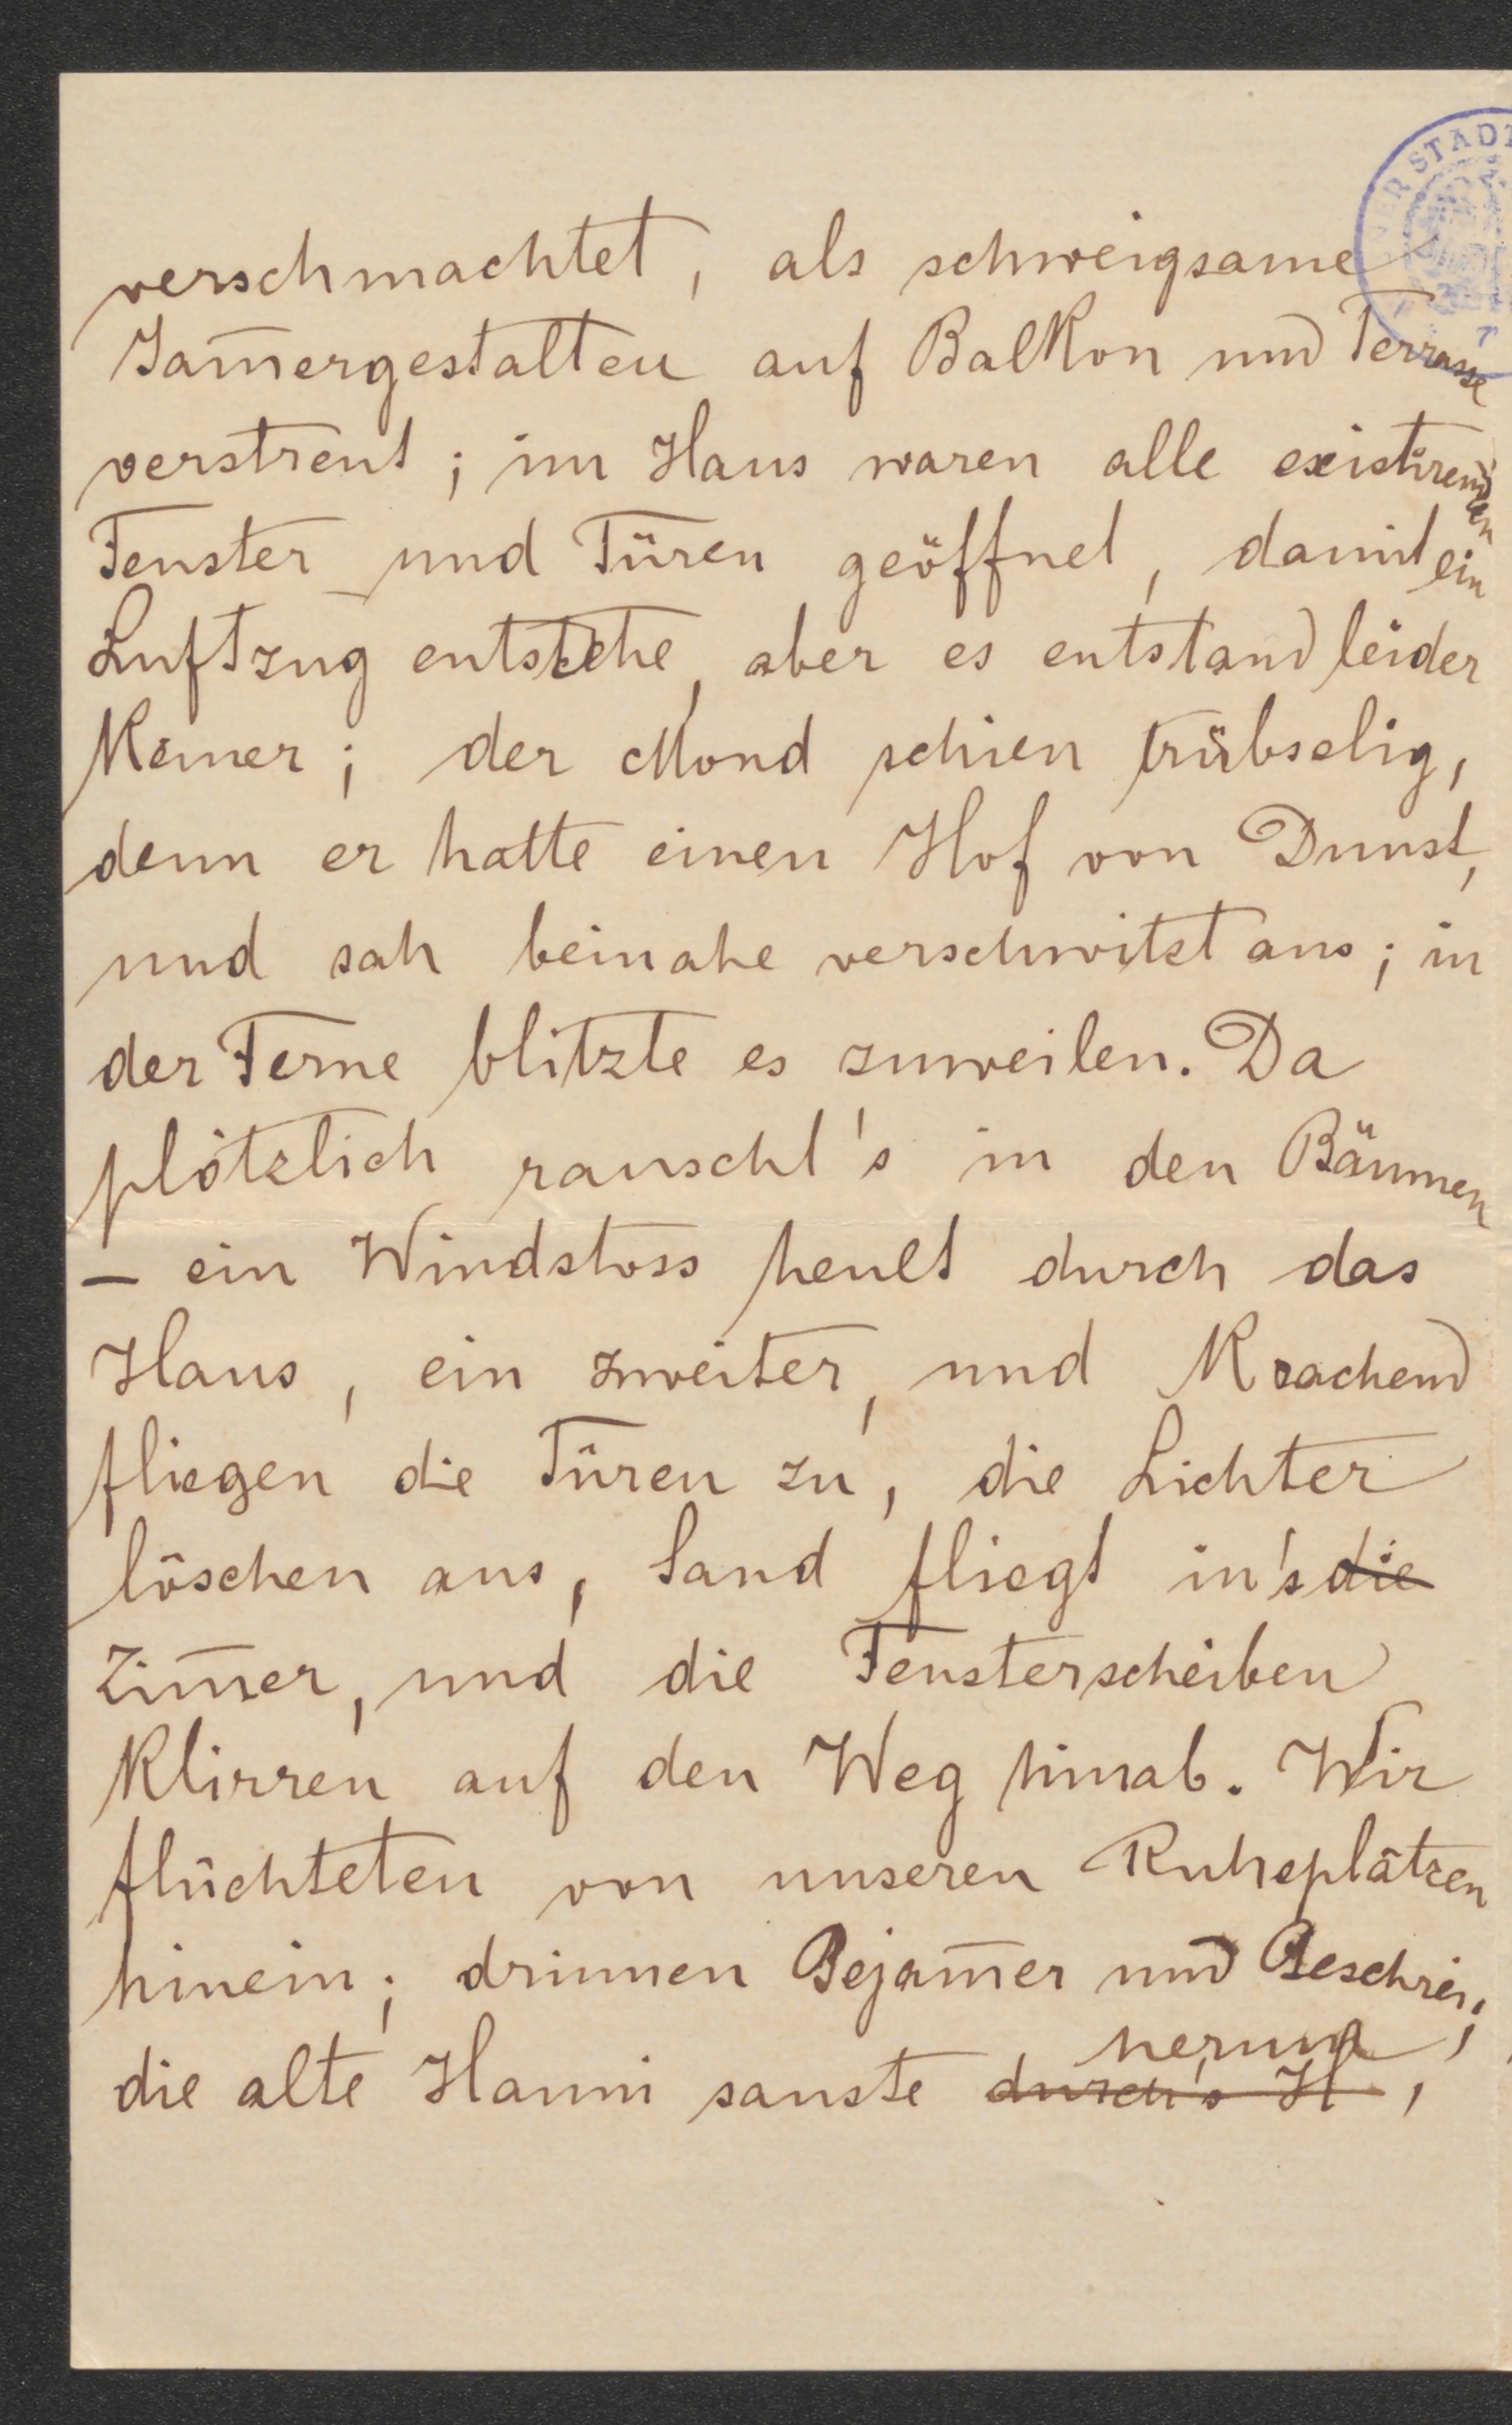 STADT
verschmachtet, als schweigsame
Jam̅ergestalten auf Balkon und Terrasse
verstreut; im Haus waren alle existirenden
Fenster und Türen geöffnet, damit ein
Luftzug entstehe, aber es entstand leider
keiner; der Mond schien trübselig,
denn er hatte einen Hof von Dunst,
und sah beinahe verschwitzt aus; in
der Ferne blitzte es zuweilen. Da
plötzlich rauscht's in den Bäumen
– ein Windstoss heult durch das
Haus, ein zweiter, und krachend
fliegen die Türen zu, die Lichter
löschen aus, Sand fliegt in's die
Zim̅er, und die Fensterscheiben
klirren auf den Weg hinab. Wir
flüchteten von unseren Ruheplätzen
hinein; drinnen Gejam̅er und Geschrei;
herum,
die alte Hanni sauste durch's H,